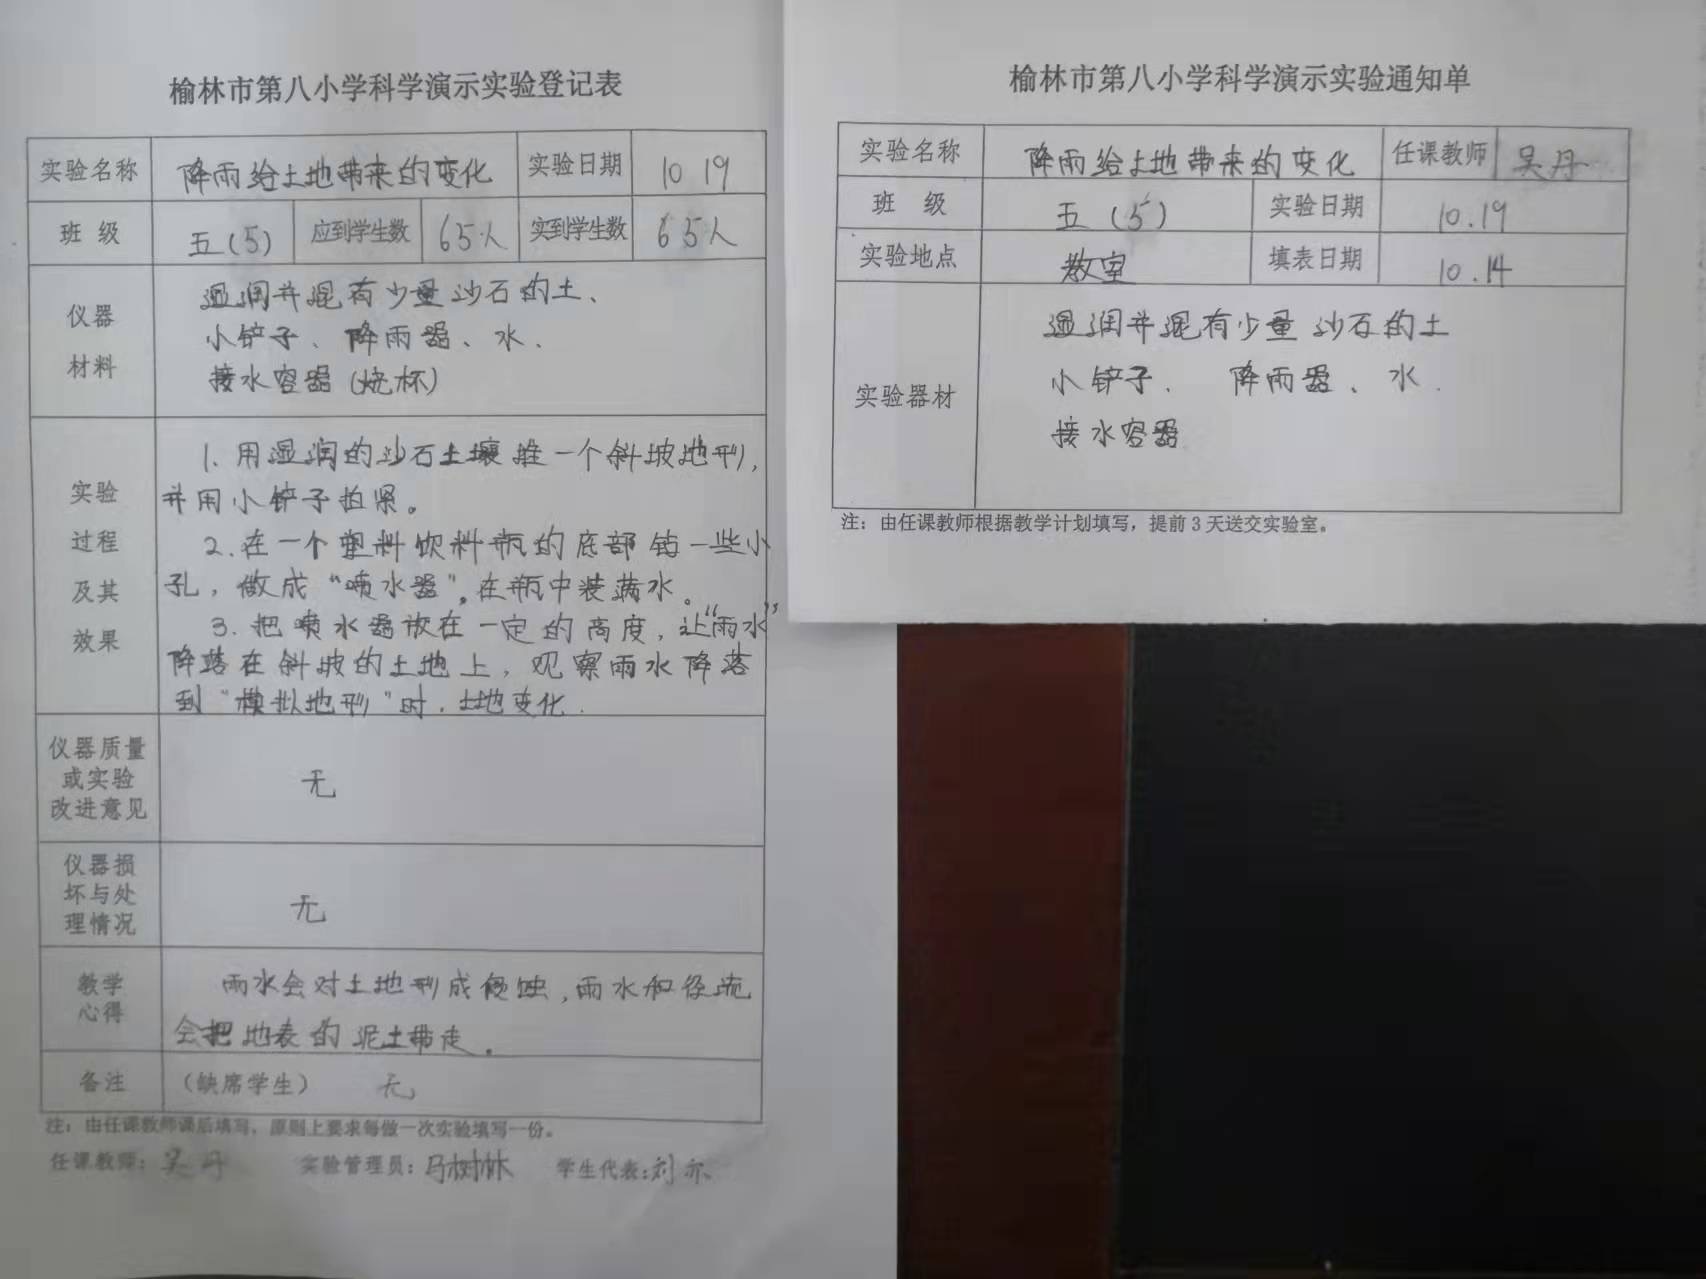 榆林市第八小学科学演示实验登记表
实验名称 降雨给土地带来的变化 实验日期 10 19
班 级 五(5) 应到学生数 65人 实到学生数 65人
仪器
材料
湿润并混有少量沙石的土、
小铲子、降雨器、水、
接水容器(烧杯)
实验
过程
及其
效果
1. 用湿润的沙石土壤堆一个斜坡地形,
并用小铲子拍紧。
2. 在一个塑料饮料瓶的底部钻一些小
孔,做成“喷水器”。在瓶中装满水。
3. 把喷水器放在一定的高度,让“雨水”
降落在斜坡的土地上,观察雨水降落
到“模拟地形”时,土地变化.
仪器质量
或实验
改进意见
无
仪器损
坏与处
理情况
无
教学
心得
雨水会对土地形成侵蚀,雨水和径流
会把地表的泥土带走。
备注 (缺席学生) 无
注:由任课教师课后填写,原则上要求每做一次实验填写一份。
任课教师:吴丹 实验管理员:马树林 学生代表:刘亦
榆林市第八小学科学演示实验通知单
实验名称 降雨给土地带来的变化 任课教师 吴丹
班 级 五(5) 实验日期 10.19
实验地点 教室 填表日期 10.14
实验器材
湿润并混有少量沙石的土
小铲子、 降雨器、水.
接水容器
注:由任课教师根据教学计划填写,提前3天送交实验室。